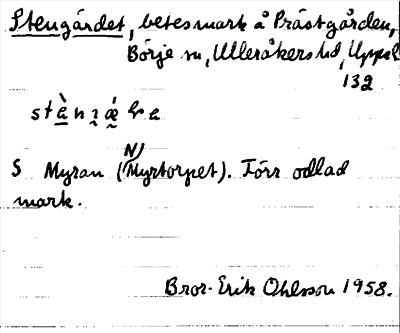 Stengärdet, betesmark å Prästgården,
Börje sn, Ulleråkers hd, Uppsl
132
S Myran (N/ Myrtorpet). Förr odlad
mark.
Bror-Erik Ohlsson 1958.